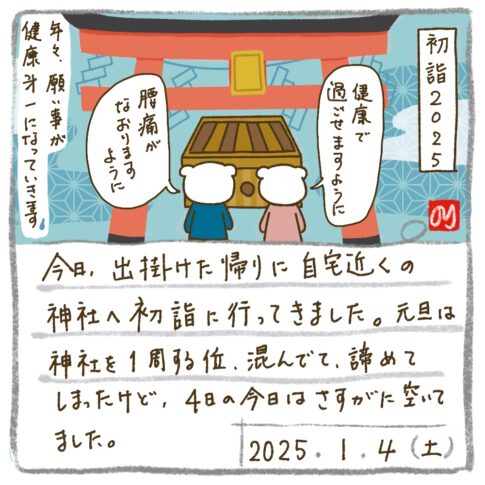 初詣2025
健康で
過ごせますように
腰痛が
なおります
ように
年々、願い事が
健康第一になっていきます。
今日、出掛けた帰りに自宅近くの
神社へ初詣に行ってきました。元旦は
神社を1周する位、混んでて、諦めて
しまったけど、4日の今日はさすがに空いて
ました。
2025.1.4(土)